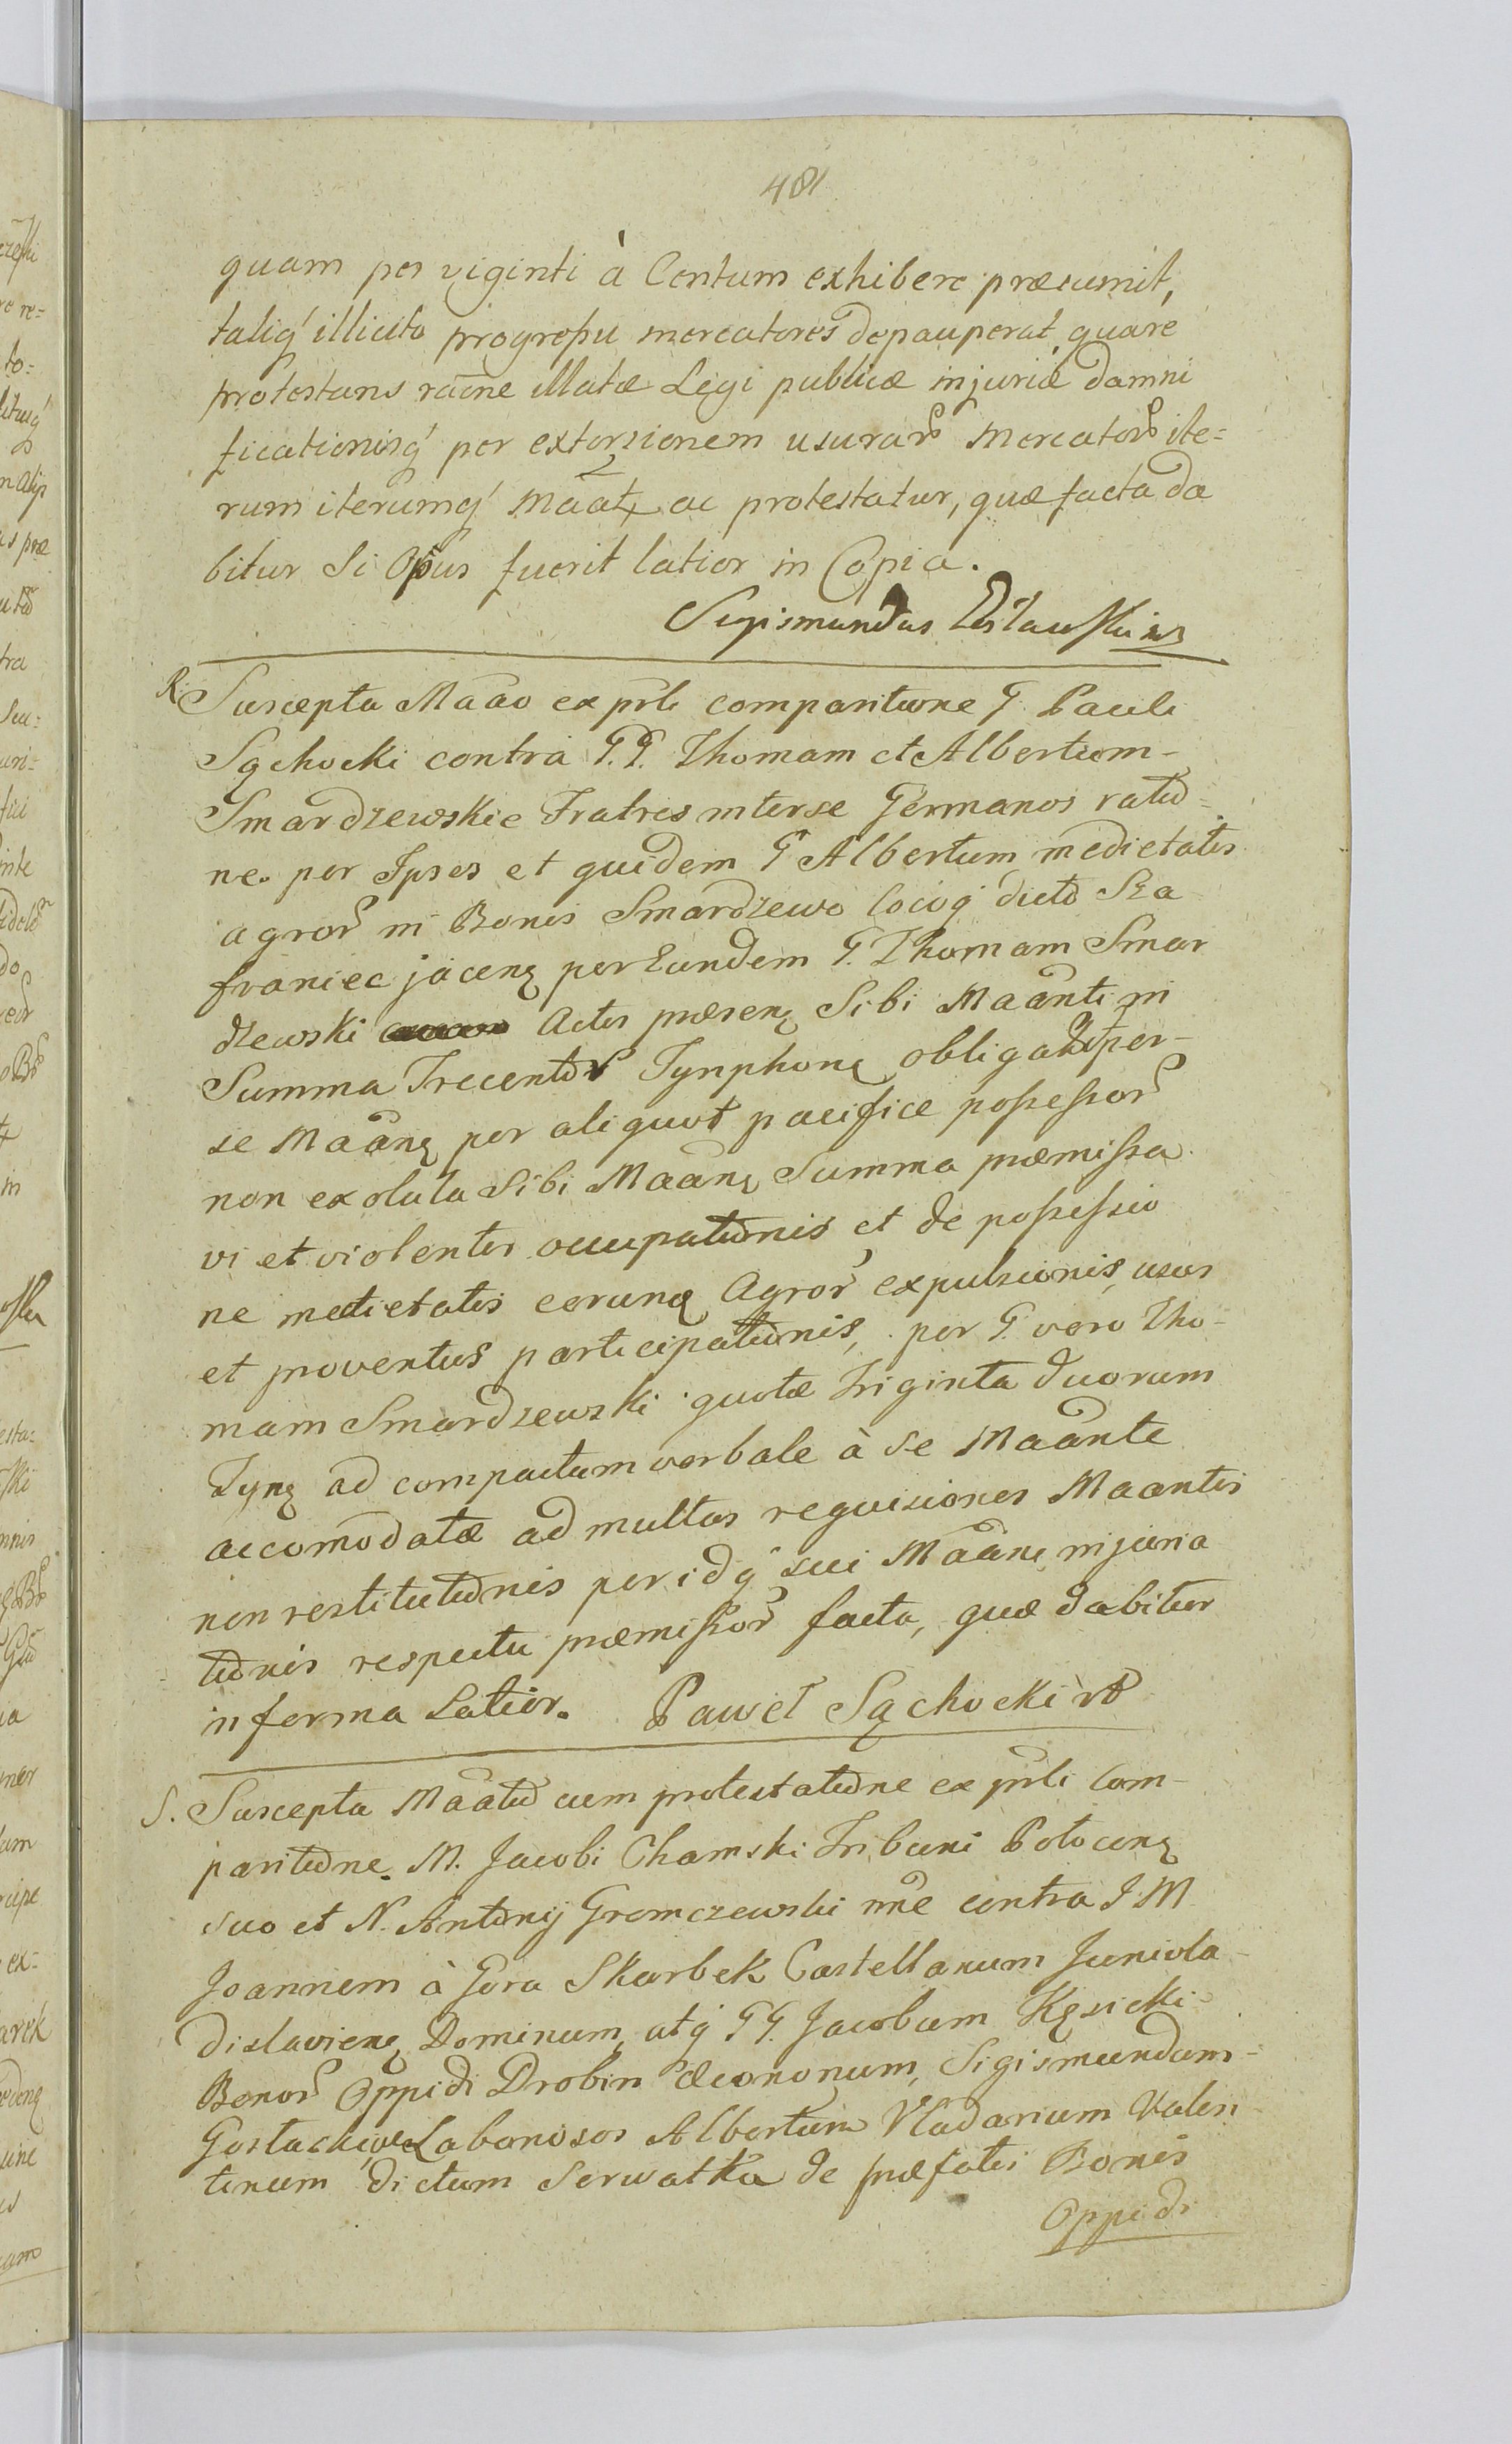 481
quam per viginti à Centum exhibere præsumit,
taliq' illicito progressu mercatores depauperat, quare
protestans raõne illatæ Legi publicæ injuriæ damni
ficationisq' per extorsionem usurar mercator ite=
rum iterumq' Mãat, ac protestatur, quæ facta da
bitur Si Opus fuerit latior in Copia.
Sigismundus
R. Suscepta Maão ex prli comparitione G. Pauli
Sąchocki contra G.G. Thomam et Albertum
Smardzewskie Fratres interse Germanos ratio
ne. per Ipsos et quidem G Albertum medietatis
agror in Bonis Smardzewo locoq' dicto Sza
franiec jacenę per Eundem G. Thomam Smar
dzewski Actis præsenę Sibi Maãnti in
Summa Trecentor Tynphonę obligat per
se Maãnę per aliquot pacifice possessor
non exoluta Sibi Maãnę Summa præmissa
vi et violenter occupationis et de possessio
ne medietatis eorunę Agror expulsionis, usus
et proventus participationis, per G. vero Tho-
mam Smardzewski quotæ triginta duorum
Tynę ad compactum verbale à se Maãnte
accomodatæ ad multas requisiones Maantis
non restitutionis per idq' sui Maãnę injuria
tionis respectu præmissor facta, quæ dabitur
in forma Latior. Paweł Sąchocki
S. Suscepta Maãtio cum protestatione ex prli Com-
paritione. M. Jacobi Chamski Tribuni Plocenę
suo et N. Antonij Gromczewski nne contra J.M
Joannem à Gora Skarbek Castellanum Juniola-
dislavienę Dominum, atq' GG. Jacobum Kęsicki
Bonor Oppidi Drobin Œconomum, Sigismundum
Laboriosos Albertum Vladarium Valen
tinum dictum Serwatka de præfatis Bonis
Oppidi